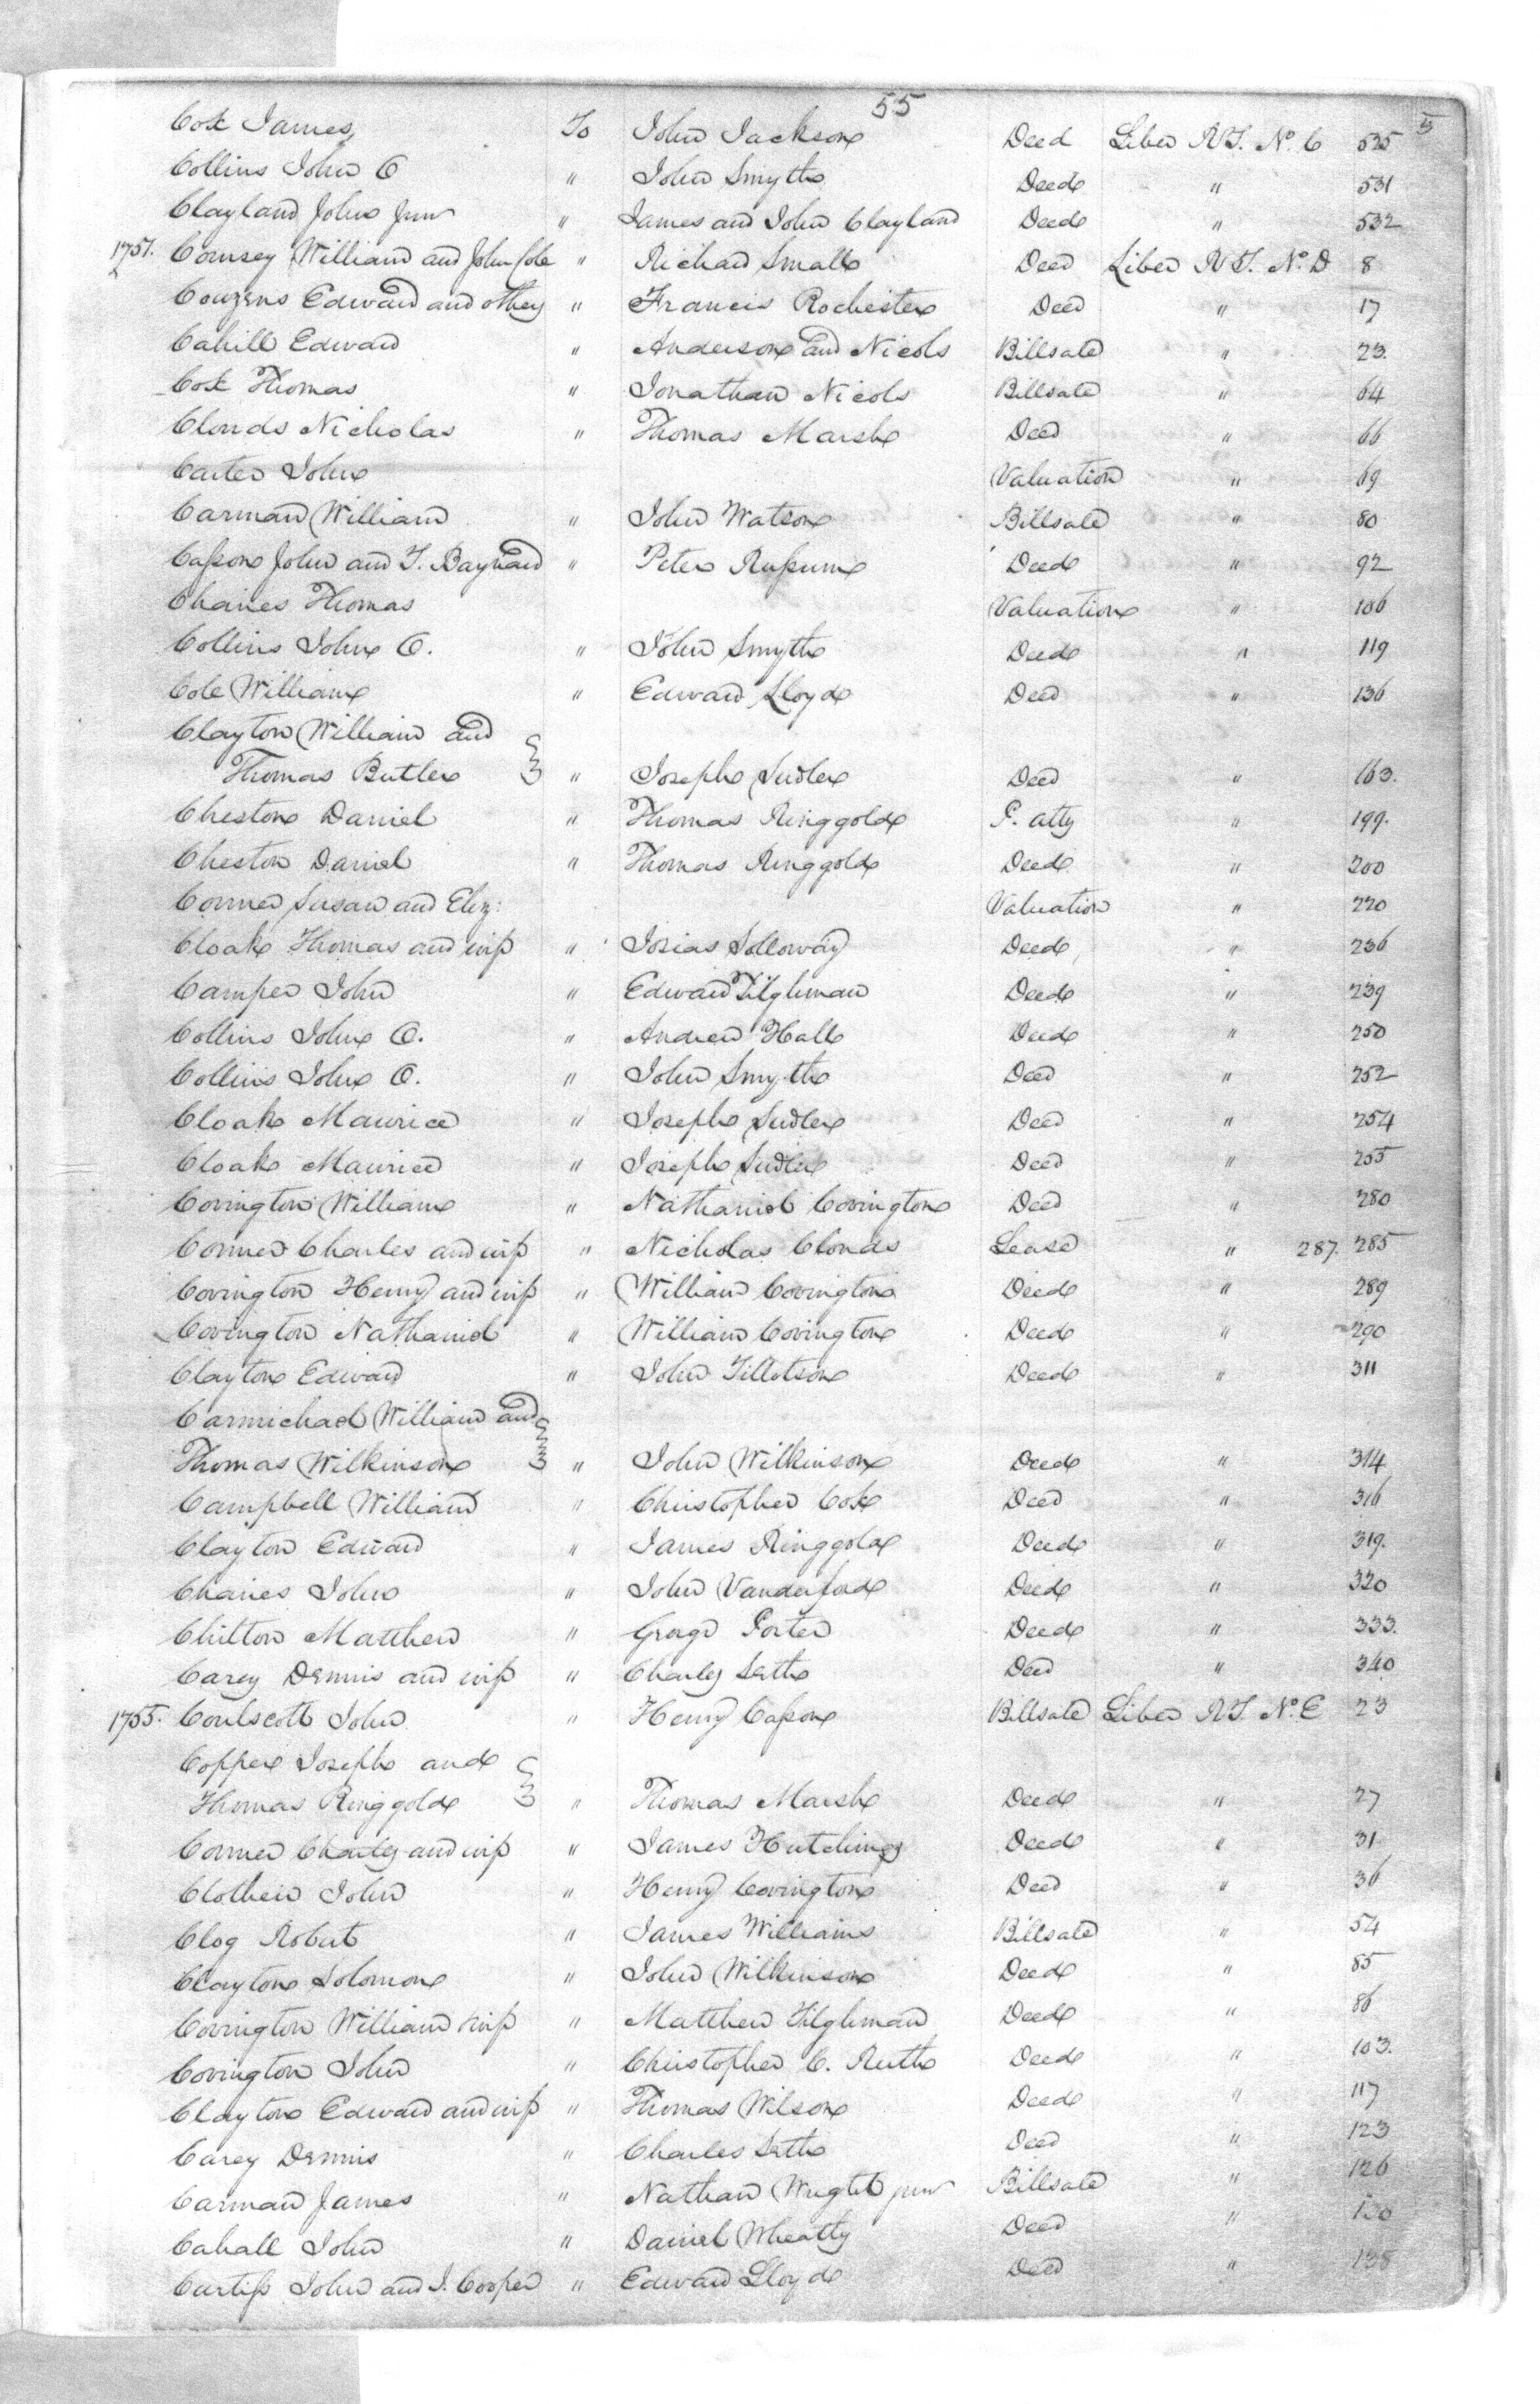 55
5
Cox James To John Jackson Deed Liber RT. No. C 525
Collins John O " John Smyth Deed " 531
Clayland John Junr " James and John Clayland Deed " 532
1751. Comsey William and John Cole " Richard Small Deed Liber RT. No. D 8
Couzens Edward and others " Francis Rochester Deed " 17
Cahill Edward " Anderson and Nicols Billsale " 23.
Cox Thomas " Jonathan Nicols Billsale " 64
Clouds Nicholas " Thomas Marsh Deed " 66
Carter John Valuation " 69
Carman William " John Watson Billsale " 80
Casson John and T. Baynard " Peter Russum Deed " 92
Chaires Thomas Valuation " 106
Collins John O. " John Smyth Deed " 119
Cole William " Edward Lloyd Deed " 136
Clayton William and
Thomas Butler " Joseph Sudler Deed " 163.
Cheston Daniel " Thomas Ringgold P. atty " 199.
Cheston Daniel " Thomas Ringgold Deed " 200
Conner Susan and Eliz: Valuation " 220
Cloak Thomas and wife " Josias Solloway Deed " 236
Camper John " Edward Tilghman Deed " 239
Collins John O. " Andrew Hall Deed " 250
Collins John O. " John Smyth Deed " 252
Cloak Maurice " Joseph Sudler Deed " 254
Cloak Maurice " Joseph Sudler Deed " 255
Covington William " Nathaniel Covington Deed " 280
Conner Charles and wife " Nicholas Clouds Lease " 287. 285
Covington Henry and wife " William Covington Deed " 289
Covington Nathaniel " William Covington Deed " 290
Clayton Edward " John Tillotson Deed " 311
Carmichael William and
Thomas Wilkinson " John Wilkinson Deed " 314
Campbell William " Christopher Cox Deed " 316
Clayton Edward " James Ringgold Deed " 319.
Chaires John " John Vanderford Deed " 320
Chilton Matthew " George Porter Deed " 333.
Carey Dennis and wife " Charles Seth Deed " 340
1755. Coulscott John " Henry Casson Billsale Liber RT. No. E 23
Copper Joseph and
Thomas Ringgold " Thomas Marsh Deed " 27
Conner Charles and wife " James Hutchings Deed " 31
Clothier John " Henry Covington Deed " 36
Clog Robert " James Williams Billsale " 54
Clayton Solomon " John Wilkinson Deed " 85
Covington William & wife " Matthew Tilghman Deed " 86
Covington John " Christopher C. Ruth Deed " 103.
Clayton Edward and wife " Thomas Wilson Deed " 117
Carey Dennis " Charles Seth Deed " 123
Carman James " Nathan Wright junr Billsale " 126
Cahall John " Daniel Wheatly Deed " 130
Curtiss John and J. Cooper " Edward Lloyd Deed " 138